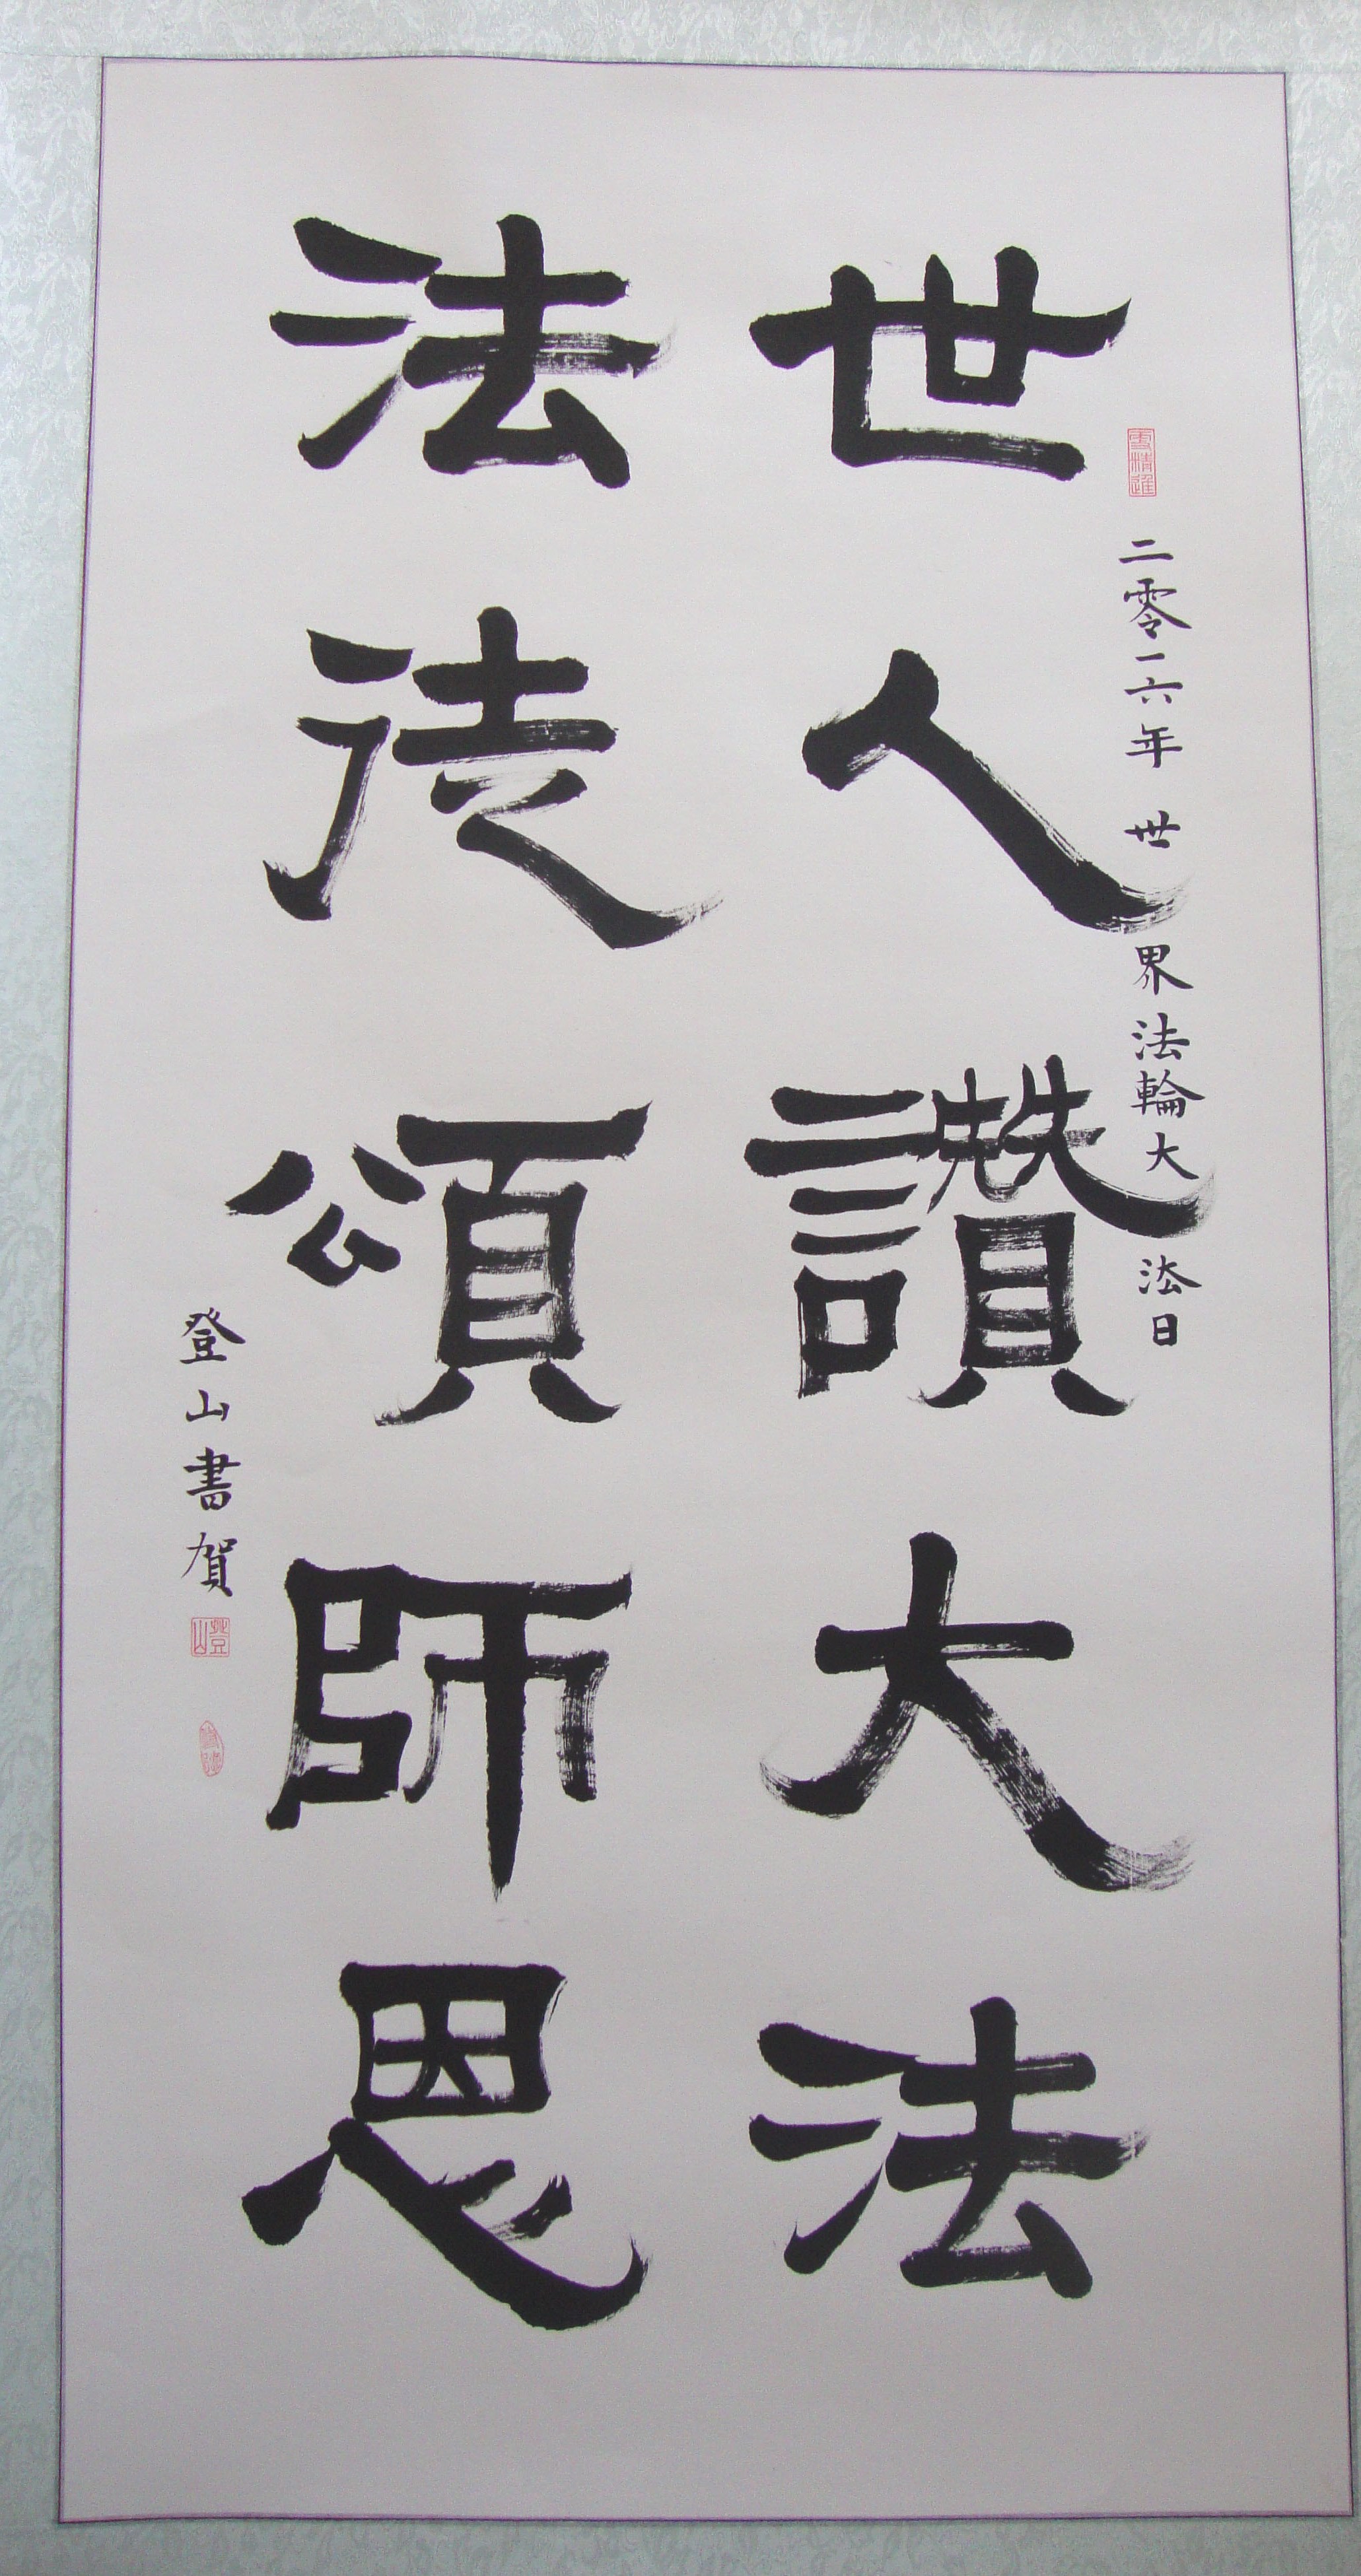 世人讚大法
法徒頌師恩
二零一六年 世界法輪大法日
登山書賀
登山